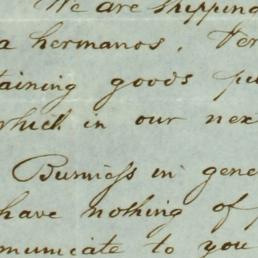 We are shipping
a hermanos. Per
taining goods pe
which in our nex
Business in gene
have nothing of
municate to you